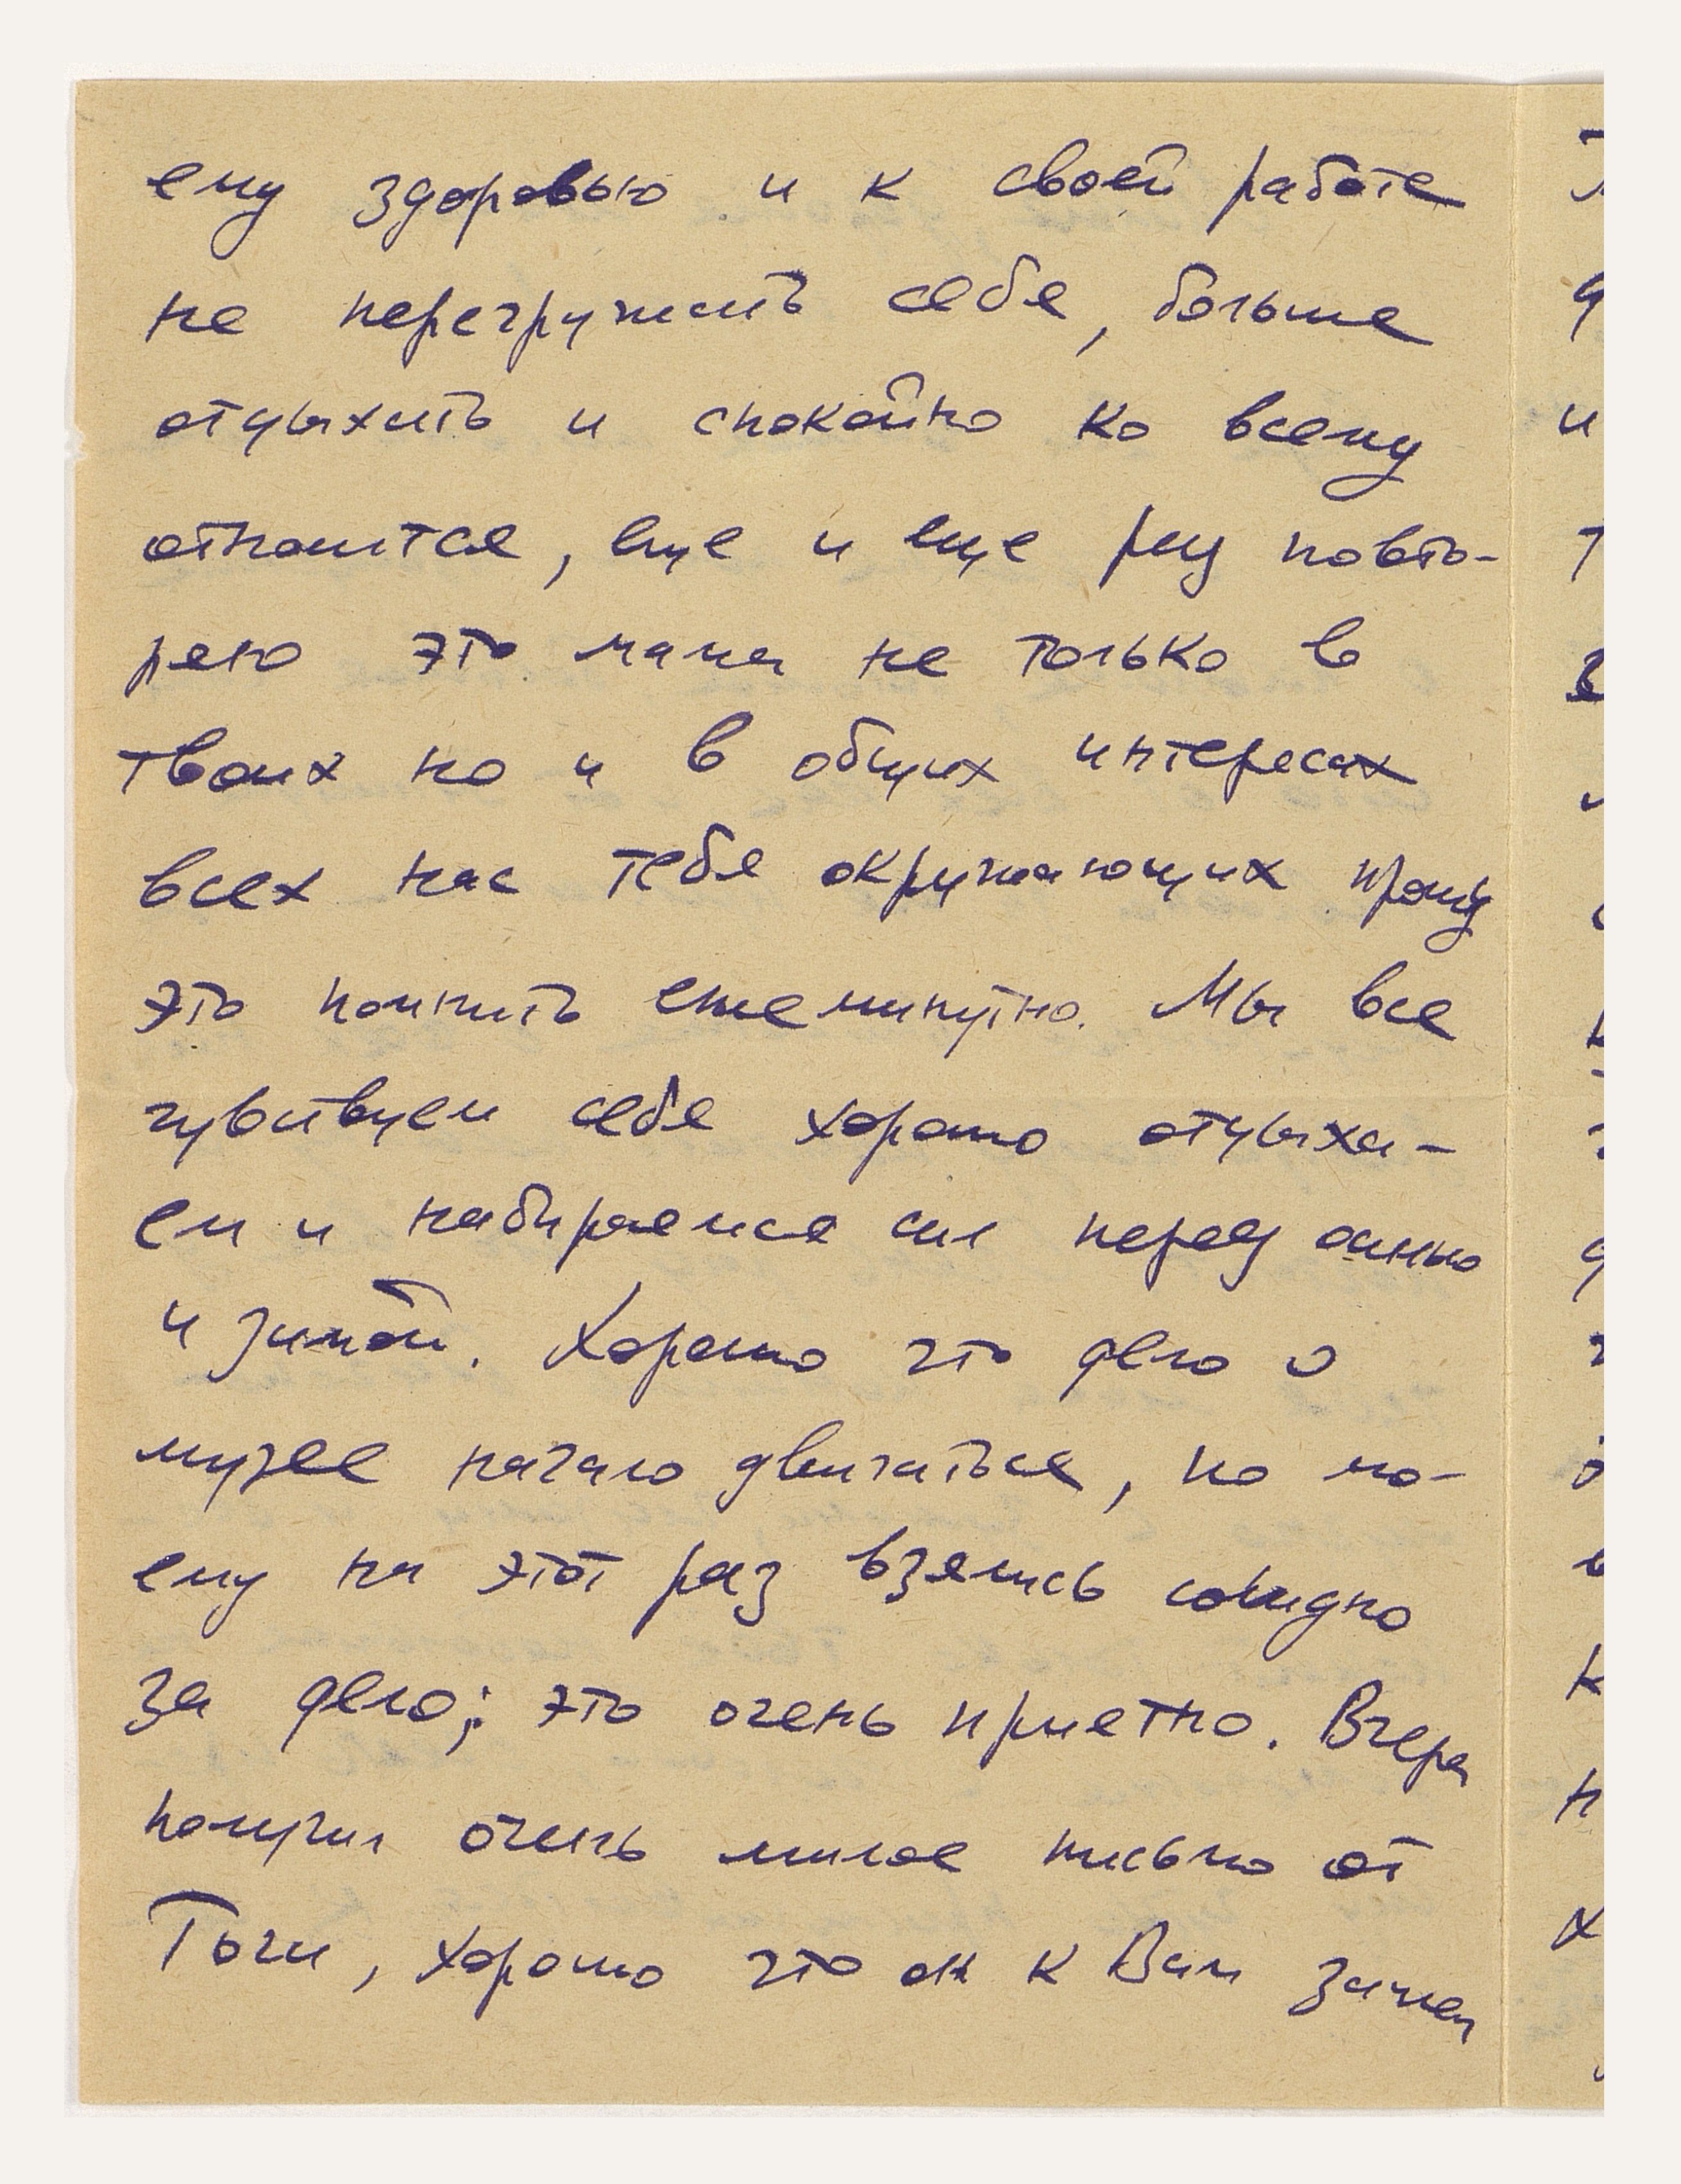 ему здоровью и к своей работе
не перегружать себя, больше
отдыхать и спокойно ко всему
относится, еще и еще раз повто-
ряю это мама не только в
твоих но и в общих интересах
всех нас тебя окружающих прошу
это помнить ежеминутно. Мы все
чувствуем себя хорошо отдыха-
ем и набираемся сил перед осенью
и зимой. Хорошо что дело о
музее начало двигаться, по мо-
ему на этот раз взялись солидно
за дело; это очень приятно. Вчера
получил очень милое письмо от
Гоги, хорошо что он к Вам